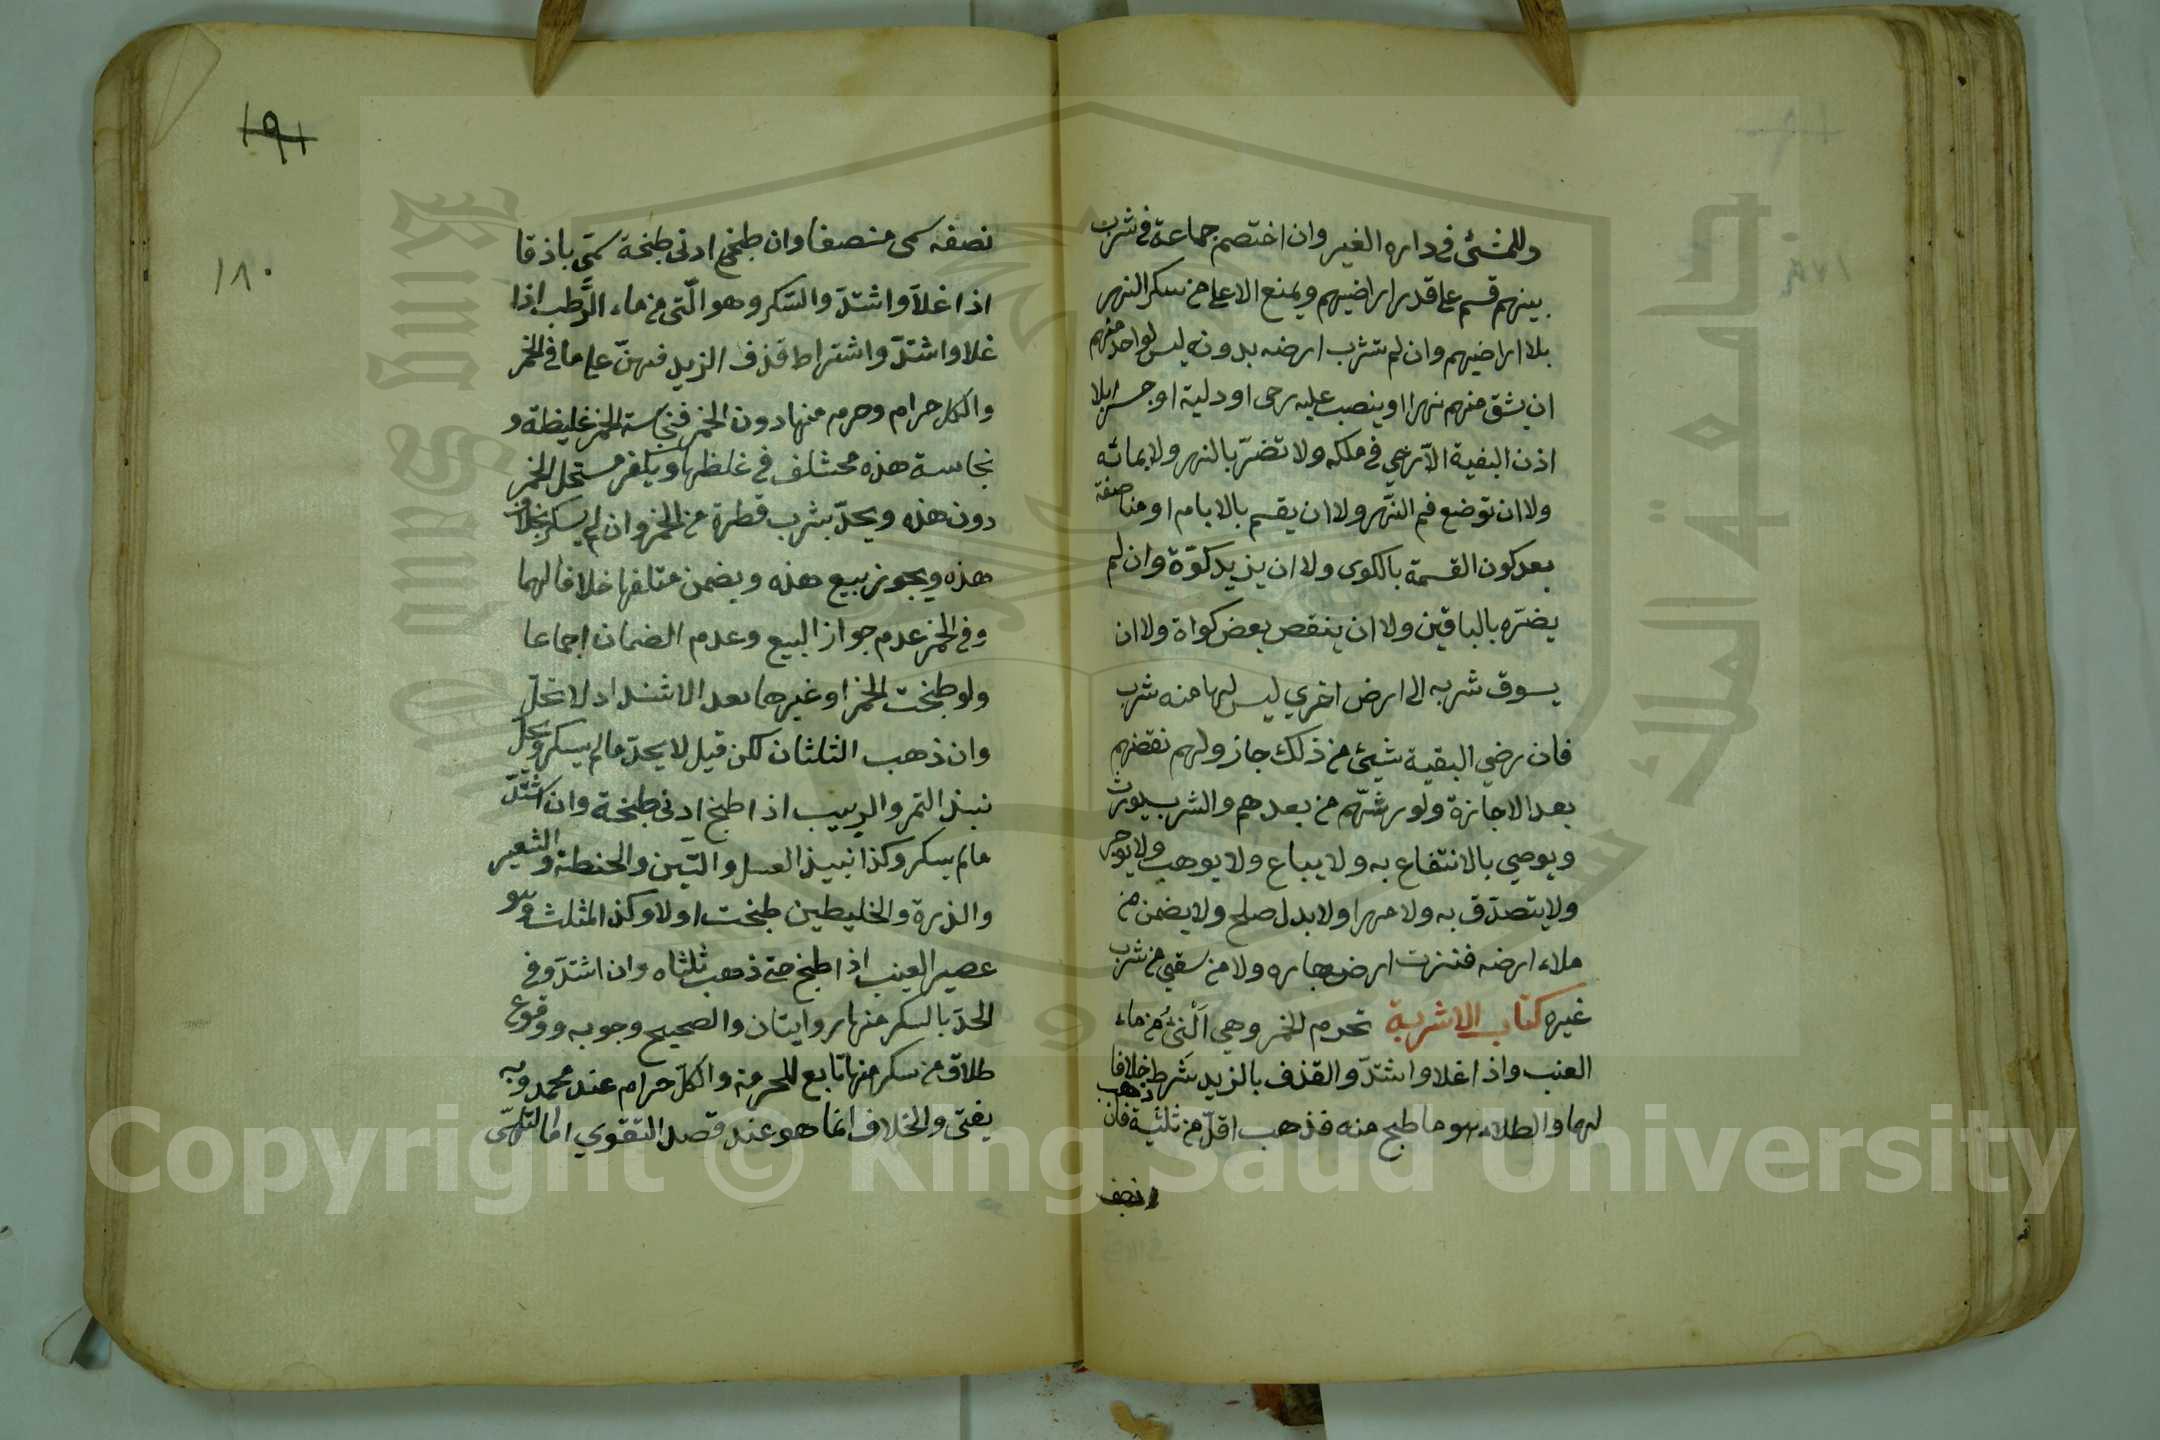 وللمشئ في داره الغير وان اختصم جماعة في شرب
بينهم قسم على قدر اراضيهم ويمنع الاعلى من سكر النهر
بلا اراضيهم وان لم تشرب ارضه بدونه ليس لواحد منهم
ان يشق منهم نهرا او ينصب عليه رحى او دلية او جسر ابلا
اذن البقية الا رحي في ملكه ولا تضر بالنهر ولا بمائه
ولا ان توضع فم النهر ولا ان يقسم بالايام او مناصفة
بعد كون القسمة بالكوى ولا ان يزيد كوّة وان لم
يضره بالباقين ولا ان ينقص بعض كواة ولا ان
يسوق شربه الى ارض اخري ليس لها منه شرب
فان رضي البقية شيئ من ذلك جاز ولهم نقضهم
بعد الاجازة ولورثتهم من بعدهم والشرب يورث
ويوصي بالانتفاع به ولا يباع ولا يوهب ولا يوجر
ولا يتصدق به ولا مهرا ولا بدل صلح ولا يضمن من
ملاء ارضه فنزت ارض جاره ولا من سقي من شرب
غيره كتاب الاشربة تحرم الخمر وهي النئ من ماء
العنب واذا غلا واشتد والقذف بالزبد شرط خلافا
لهما والطلاء هو ما طبخ منه فذهب اقل من ثلثية فان ذهب
نصف
١٩١
١٨٠
نصفه سمى منصفا وان طبخ ادنى طبخة سمّى باذقا
اذا غلا واشتد والسكر وهو النّي من ماء الرطب اذا
غلا واشتد واشتراط قذف الزبد فيهن على ما في الخمر
والكل حرام وحرمه منها دون الخمر فنجاسة الخمر غليظة و
نجاسة هذه مختلف في غلظها ويكفر مستحل الخمر
دون هذه ويحد بشرب قطرة من الخمر وان لم يسكر بخلاف
هذه ويجوز بيع هذه ويضمن متلفها خلافا لهما
وفي الخمر عدم جواز البيع وعدم الضمان اجماعا
ولو طبخت الخمر او غيرهما بعد الاشتداد لا تحل
وان ذهب الثلثان لكن قيل لا يحد ما لم يسكر ويحل
نبيذ التمر والزبيب اذا طبخ ادنى طبخة وان اشتدّ
مالم يسكر وكذا نبيذ العسل والتين والحنطة والشعير
والذرة والخليطين طبخت اولا وكذا المثلث وهو
عصير العنب اذا طبخ حتى ذهب ثلثاه وان اشتد وفي
الحد بالسكر منها روايتان والصحيح وجوبه ووقوع
طلاق من سكر منها تابع للحرمة والكل حرام عند محمد وبه
يفتى والخلاف انما هو عند قصد التقوي اما التلهى
Copyright © King Saud University
King Saud
جامعة الملك